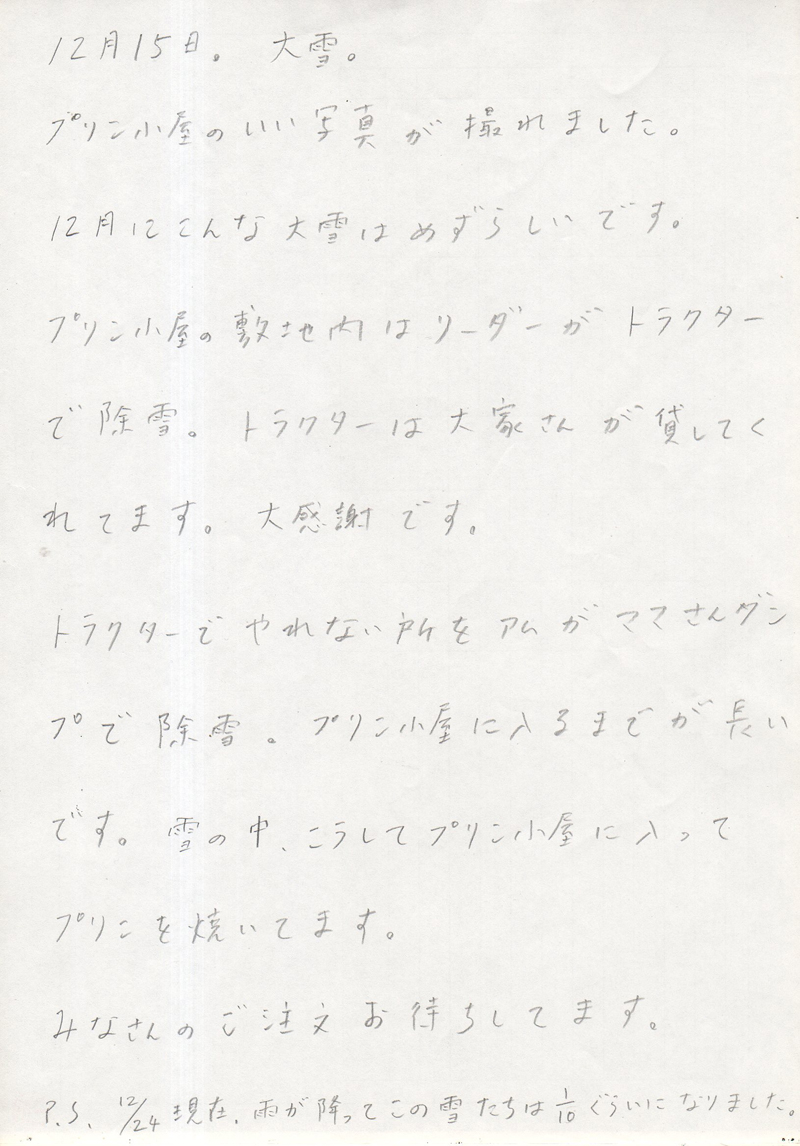 12月15日。 大雪。
プリン小屋のいい写真が撮れました。
12月にこんな大雪はめずらしいです。
プリン小屋の敷地内はリーダーがトラクター
で除雪。トラクターは大家さんが貸してく
れてます。大感謝です。
トラクターでやれない所をアムがママさんダン
プで除雪。プリン小屋に入るまでが長い
です。雪の中、こうしてプリン小屋に入って
プリンを焼いてます。
みなさんのご注文お待ちしてます。
P.S、12/24現在、雨が降ってこの雪たちは1/10ぐらいになりました。